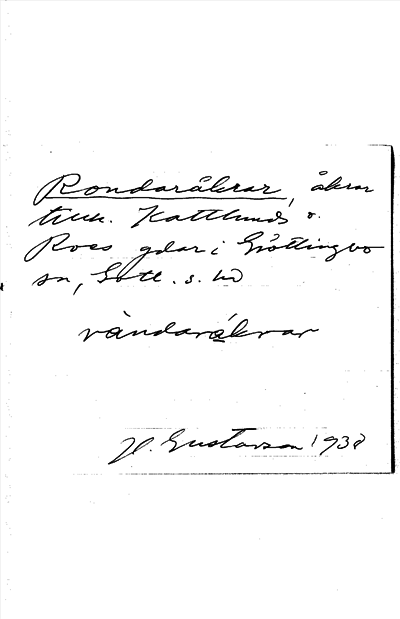 Rondaråkrar, åkrar
till. Kattlunds o.
Roes gdar i Gröttingbo
sn, Gotl. s. hd
råndaråkrar
H. Gustavson 1938